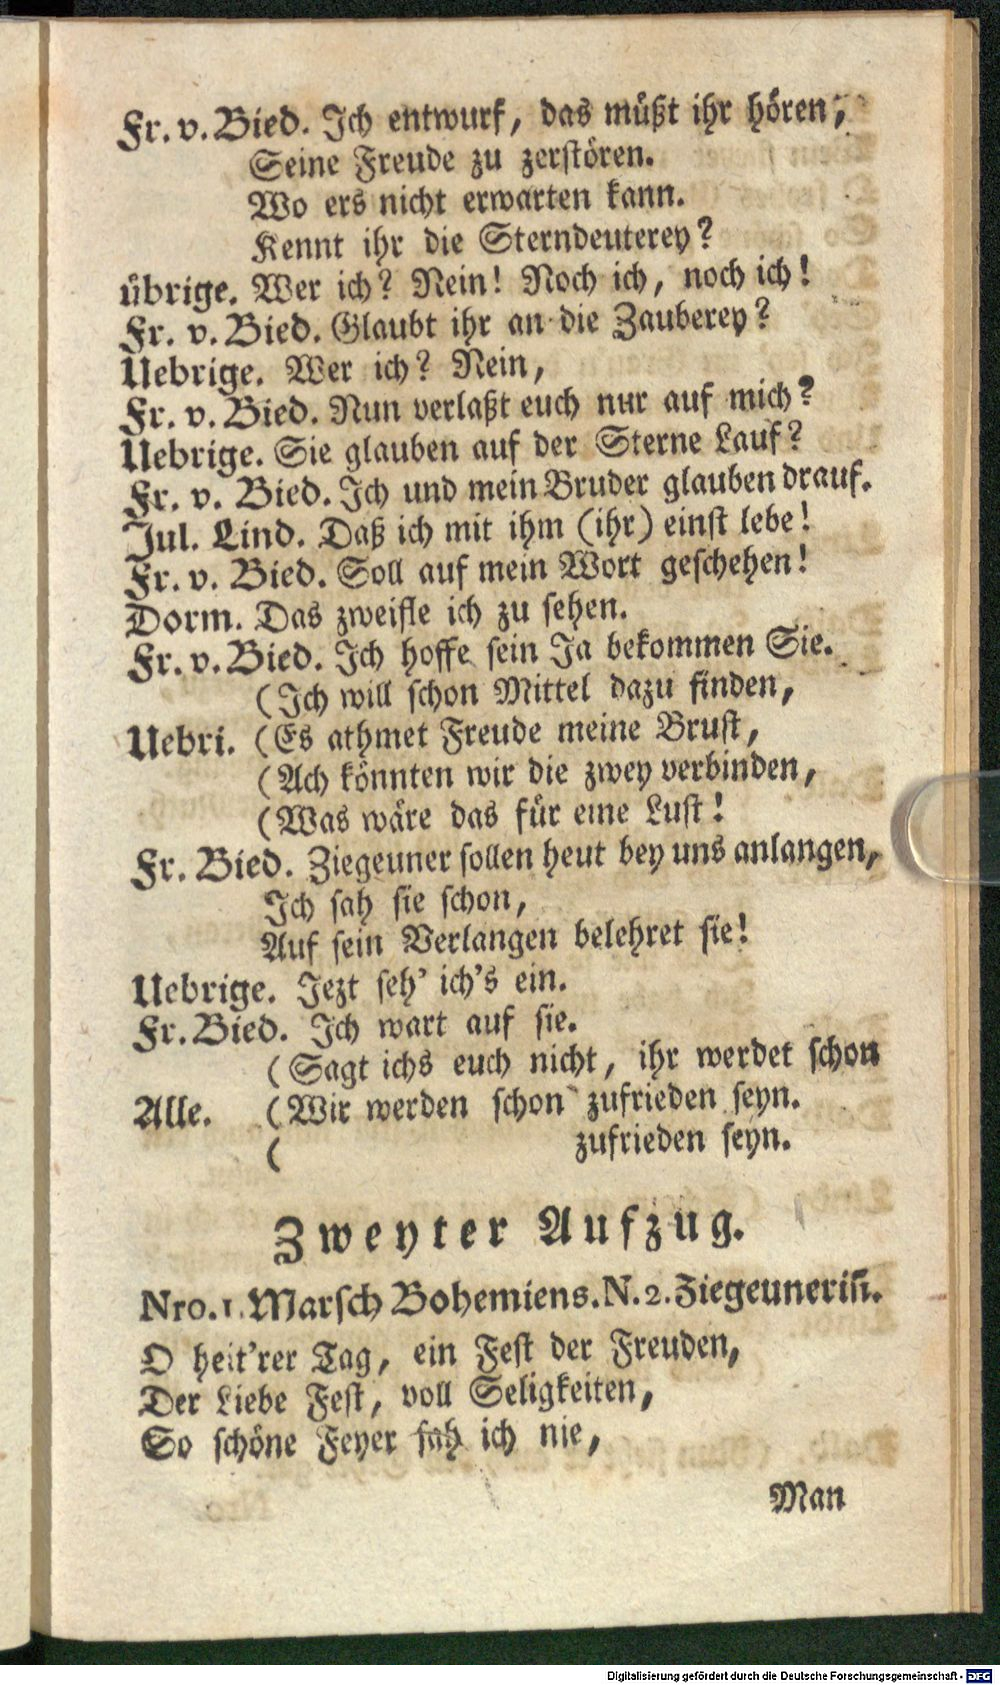 Fr. v. Bied. Ich entwurf, das müßt ihr hören,
Seine Freude zu zerstören.
Wo ers nicht erwarten kann.
Kennt ihr die Sterndeuterey?
übrige. Wer ich? Nein! Noch ich, noch ich!
Fr. v. Bied. Glaubt ihr an die Zauberey?
Uebrige. Wer ich? Nein,
Fr. v. Bied. Nun verlaßt euch nur auf mich?
Uebrige. Sie glauben auf der Sterne Lauf?
Fr. v. Bied. Ich und mein Bruder glauben drauf.
Jul. Lind. Daß ich mit ihm (ihr) einst lebe!
Fr. v. Bied. Soll auf mein Wort geschehen!
Dorm. Das zweifle ich zu sehen.
Fr. v. Bied. Ich hoffe sein Ja bekommen Sie.
(Ich will schon Mittel dazu finden,
Uebri. (Es athmet Freude meine Brust,
(Ach könnten wir die zwey verbinden,
(Was wäre das für eine Lust!
Fr. Bied. Ziegeuner sollen heut bey uns anlangen,
Ich sah sie schon,
Auf sein Verlangen belehret sie!
Uebrige. Jezt seh' ich's ein.
Fr. Bied. Ich wart auf sie.
(Sagt ichs euch nicht, ihr werdet schon
Alle. (Wir werden schon zufrieden seyn.
( zufrieden seyn.
Zweyter Aufzug.
Nro. 1. Marsch Bohemiens. N. 2. Ziegeunerisn.
O heit'rer Tag, ein Fest der Freuden,
Der Liebe Fest, voll Seligkeiten,
So schöne Feyer sah ich nie,
Man
Digitalisierung gefördert durch die Deutsche Forschungsgemeinschaft - DFG